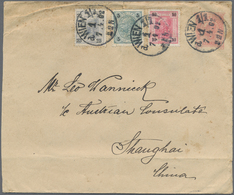 WIEN
WIEN
Mr. Leo Wannieck
Austrian Consulate
Shanghai
China